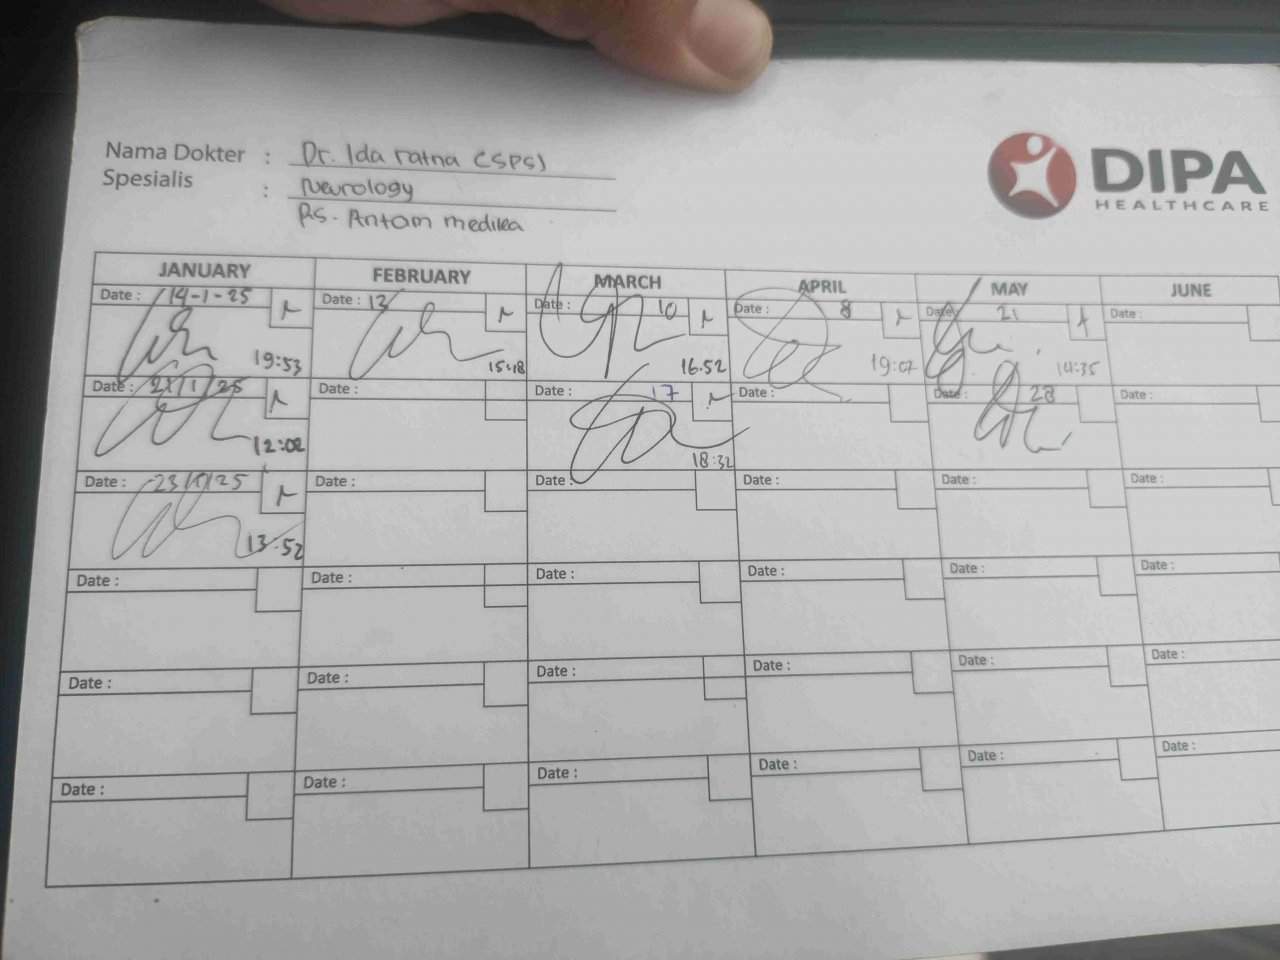 Nama Dokter : Dr. Ida ratna (SPS)
Spesialis : Neurology
RS. Antam medika
DIPA
HEALTHCARE
JANUARY FEBRUARY MARCH APRIL MAY JUNE
Date : 14-1-25 Date : 13 Date : 10 Date : 8 Date : 21 Date :
19:53 15:18 16.52 19:07 14:35
Date : /1/25 Date : Date : 17 Date : Date : 28 Date :
12:02 18:32
Date : 23/1/25 Date : Date : Date : Date : Date :
13.52
Date : Date : Date : Date : Date : Date :
Date : Date : Date : Date : Date : Date :
Date : Date : Date : Date : Date : Date :